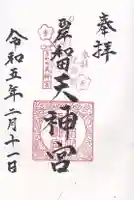 奉拝
岸和田天神宮
令和五年二月十一日